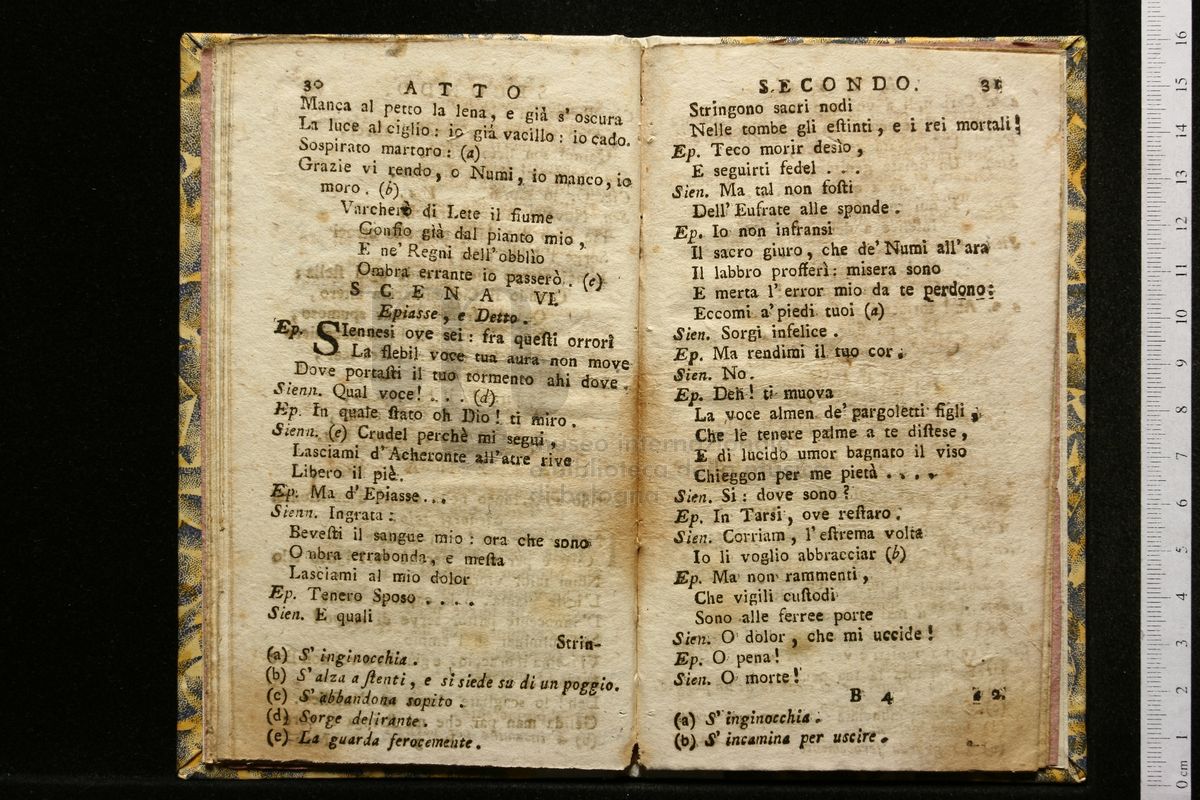 30 ATTO
Manca al petto la lena, e già s' oscura
La luce al ciglio: io già vacillo: io cado.
Sospirato martoro: (a)
Grazie vi rendo, o Numi, io manco, io
moro. (b)
Varcherò di Lete il fiume
Gonfio già dal pianto mio,
E ne' Regni dell'obblìo
Ombra errante io passerò. (c)
SCENA VI.
Epiasse, e Detto.
Ep. SIennesi ove sei: fra questi orrori
La flebil voce tua aura non move
Dove portasti il tuo tormento ahi dove.
Sienn. Qual voce! . . . (d)
Ep. In quale stato oh Dio! ti miro.
Sienn. (e) Crudel perchè mi segui,
Lasciami d'Acheronte all'atre rive
Libero il piè.
Ep. Ma d'Epiasse...
Sienn. Ingrata:
Bevesti il sangue mio: ora che sono
Ombra errabonda, e mesta
Lasciami al mio dolor
Ep. Tenero Sposo . . . .
Sien. E quali
Strin-
(a) S' inginocchia.
(b) S' alza a stenti, e si siede su di un poggio.
(c) S' abbandona sopito.
(d) Sorge delirante.
(e) La guarda ferocemente.
SECONDO. 31
Stringono sacri nodi
Nelle tombe gli estinti, e i rei mortali!
Ep. Teco morir desìo,
E seguirti fedel . . .
Sien. Ma tal non fosti
Dell'Eufrate alle sponde.
Ep. Io non infransi
Il sacro giuro, che de'Numi all'ara
Il labbro profferì: misera sono
E merta l'error mio da te perdono:
Eccomi a'piedi tuoi (a)
Sien. Sorgi infelice.
Ep. Ma rendimi il tuo cor.
Sien. No.
Ep. Deh! ti muova
La voce almen de' pargoletti figli,
Che le tenere palme a te distese,
E di lucido umor bagnato il viso
Chieggon per me pietà . . . .
Sien. Si: dove sono?
Ep. In Tarsi, ove restaro.
Sien. Corriam, l'estrema volta
Io li voglio abbracciar (b)
Ep. Ma non rammenti,
Che vigili custodi
Sono alle ferree porte
Sien. O dolor, che mi uccide!
Ep. O pena!
Sien. O morte!
B 4 a 2.
(a) S' inginocchia.
(b) S' incamina per uscire.
museo internazionale
e biblioteca della
di bologna
0 cm 1 2 3 4 5 6 7 8 9 10 11 12 13 14 15 16